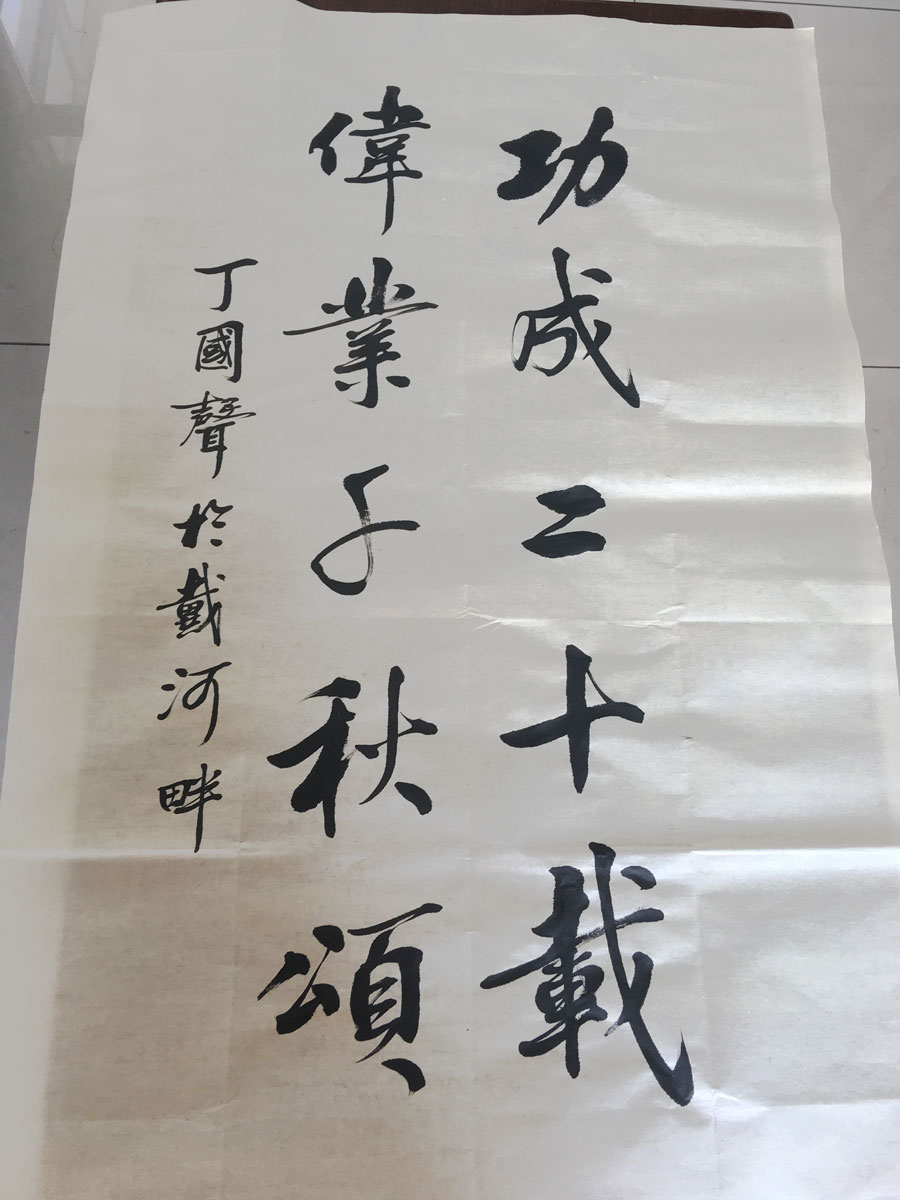 功成二十載
偉業千秋頌
丁國聲於戴河畔